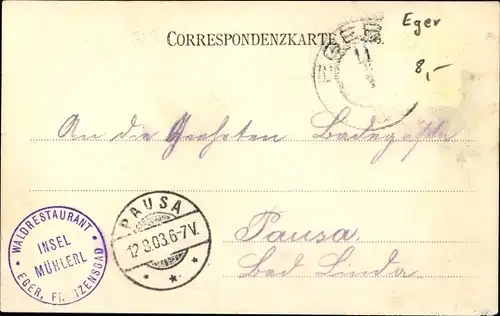 CORRESPONDENZKARTE
EGER
Eger
8,-
An die Geehrten Badegäste
Pausa.
Bad Linda.
PAUSA
12.8.03.6-7V.
* WALDRESTAURANT *
INSEL
MÜHLERL
EGER, FRANZENSBAD